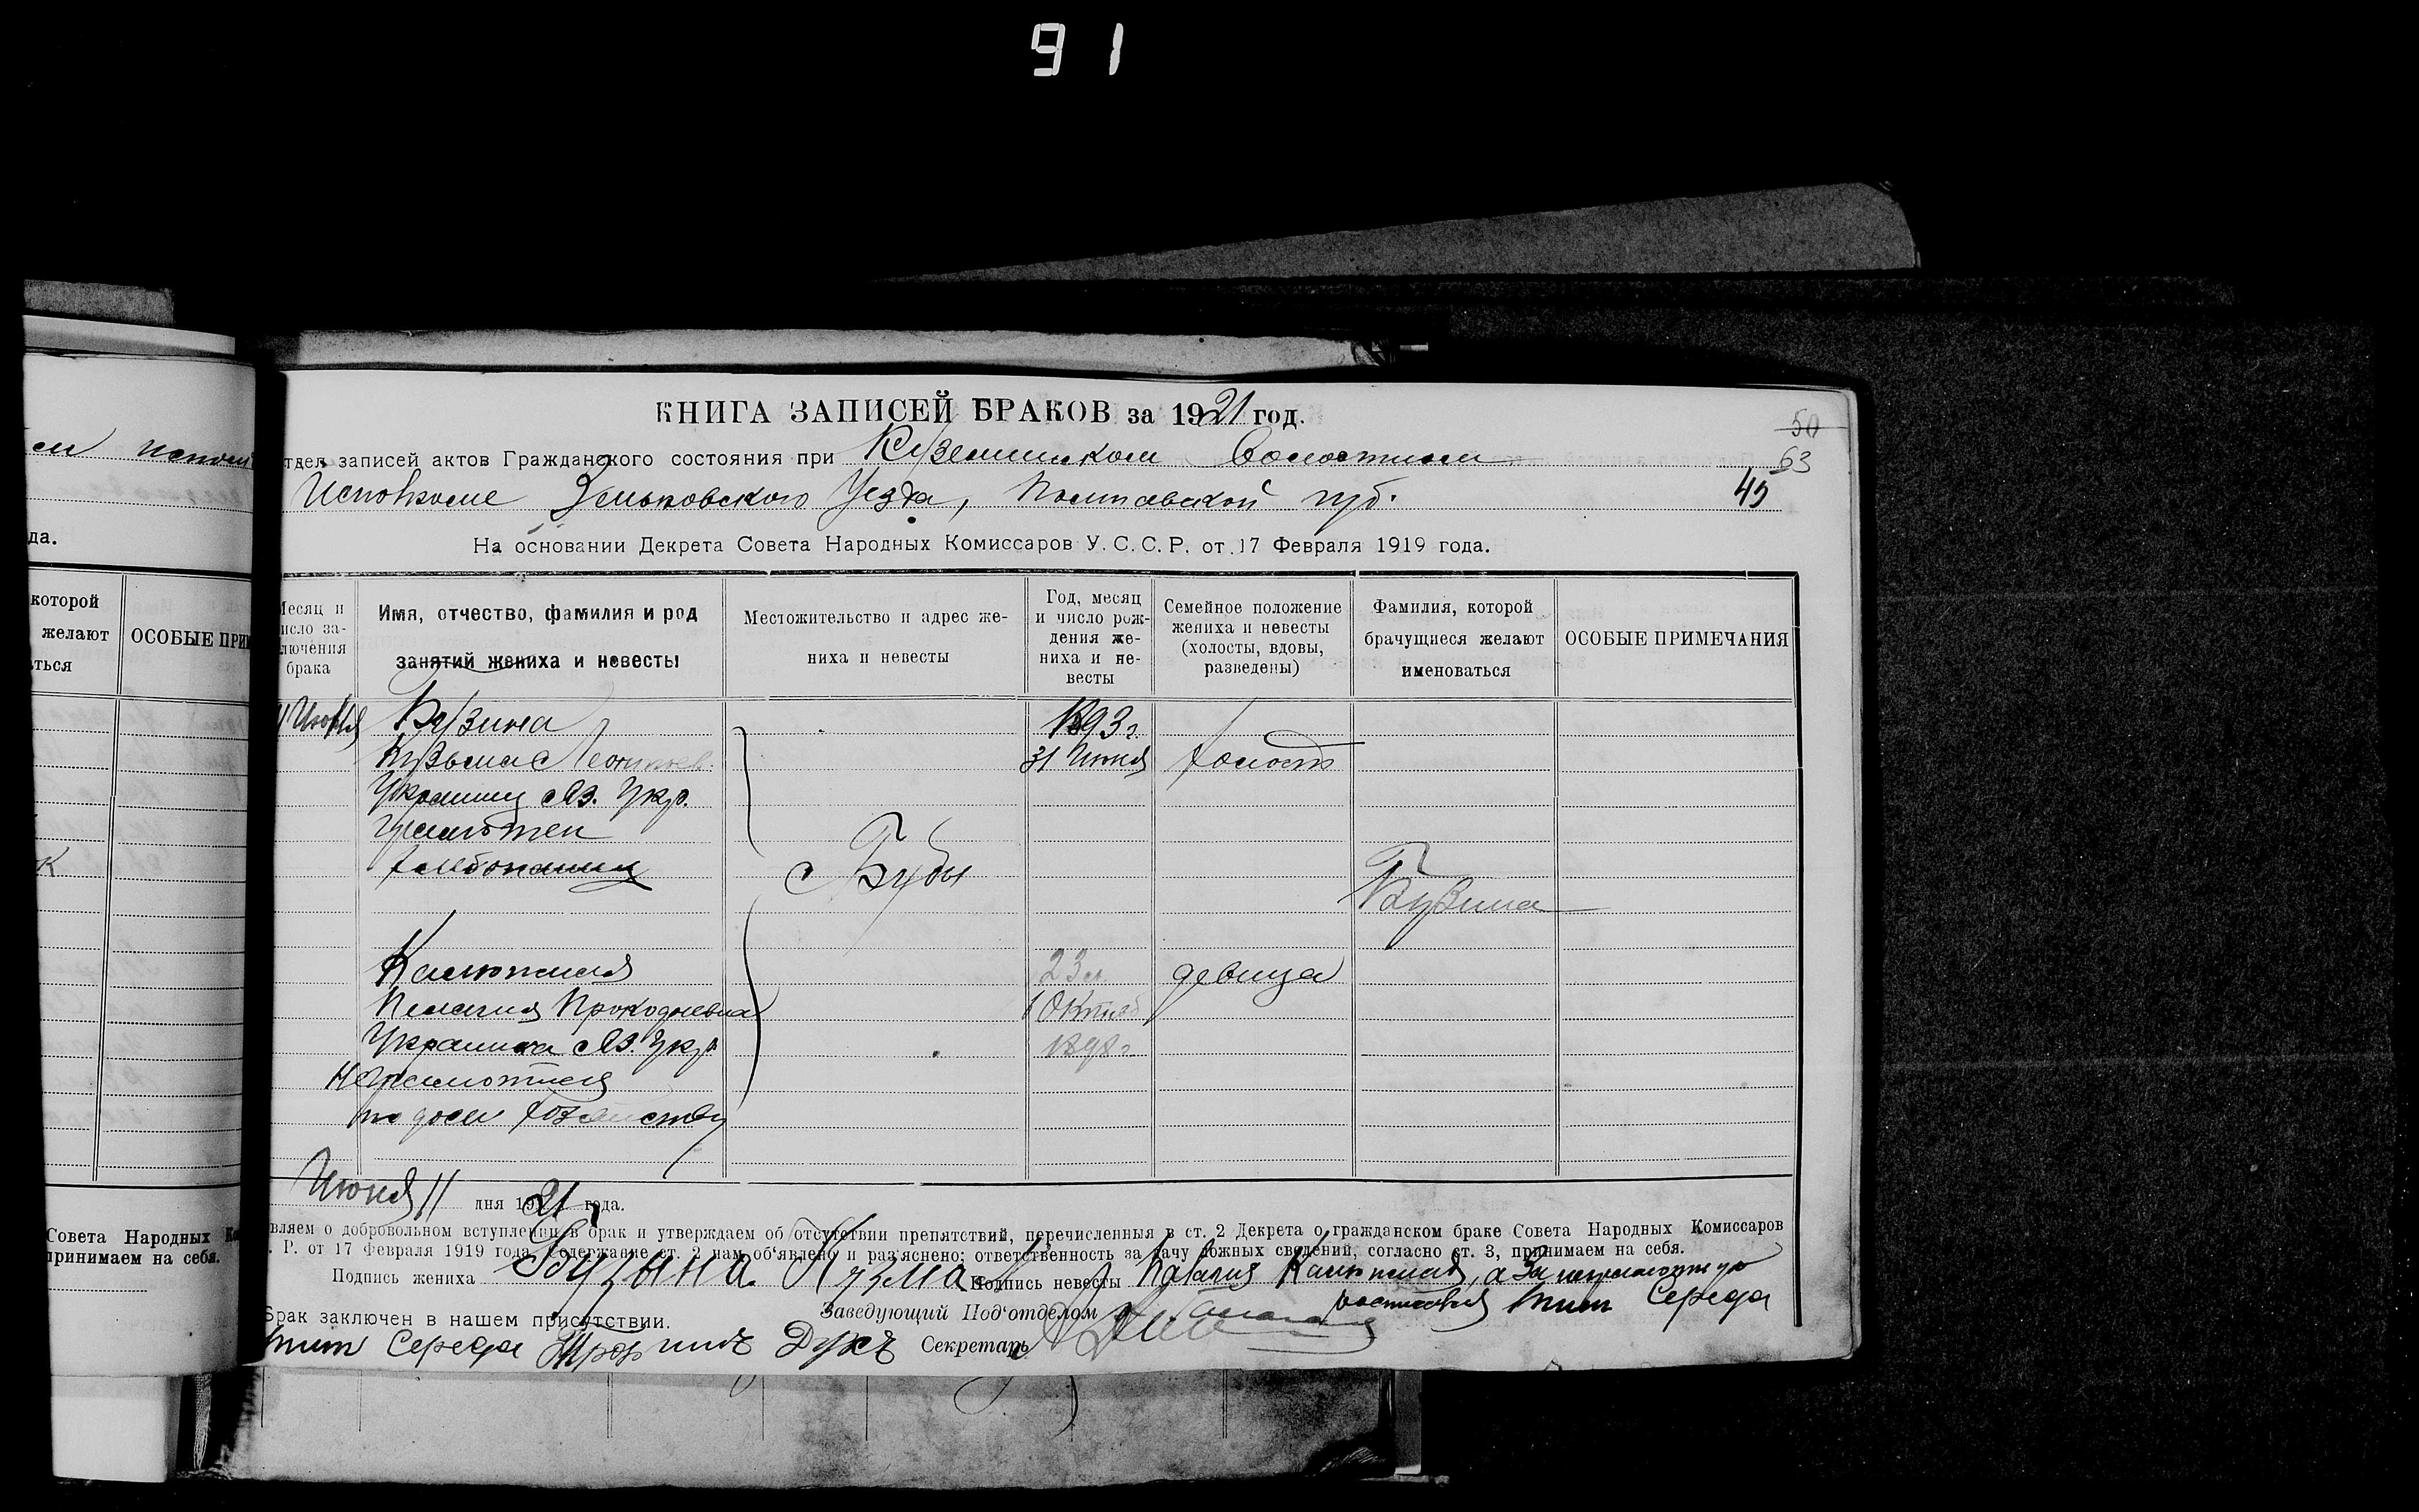 91
КНИГА ЗАПИСЕЙ БРАКОВ за 1921 год.
50
63
45
тдел записей актов Гражданского состояния при Куземинском Волостном
Исполкоме Зеньковского Уезда, Полтавской губ.
На основании Декрета Совета Народных Комиссаров У. С. С. Р. от 17 Февраля 1919 года.
да.
которой
желают
ться
ОСОБЫЕ ПРИМ
Месяц и число заключения брака
Имя, отчество, фамилия и род
занятий жениха и невесты
Местожительство и адрес же-
ниха и невесты
Год, месяц
и число рож-
дения же-
ниха и не-
весты
Семейное положение
жениха и невесты
(холосты, вдовы,
разведены)
Фамилия, которой
брачущиеся желают
именоваться
ОСОБЫЕ ПРИМЕЧАНИЯ
Июня Бузина 1893 г.
Кузьма Леонтьев. 31 Июня холост
Украинец яз. Укр.
грамотен
хлебопашец
с Бубны
Бузина
Калюжная 23 л. девица
Пелагия 1 Октяб
Украинка яз. укр. 1898 г
Неграмотная
по дом хозяйству
Июня 11 дня 1921 года.
вляем о добровольном вступлении в брак и утверждаем об отсутствии препятствий, перечисленныя в ст. 2 Декрета о гражданском браке Совета Народных Комиссаров
. Р. от 17 Февраля 1919 года. Содержание ст. 2 нам об'явлено и раз'яснено; ответственность за дачу ложных сведений, согласно ст. 3, принимаем на себя.
Подпись жениха Бузына Кузма Подпись невесты Калюжная, а за неграмотную
расписался Тит Середа
Брак заключен в нашем присутствии. Заведующий Под'отделом
Тит Середа Трофим Секретарь
Совета Народных Ко
принимаем на себя.